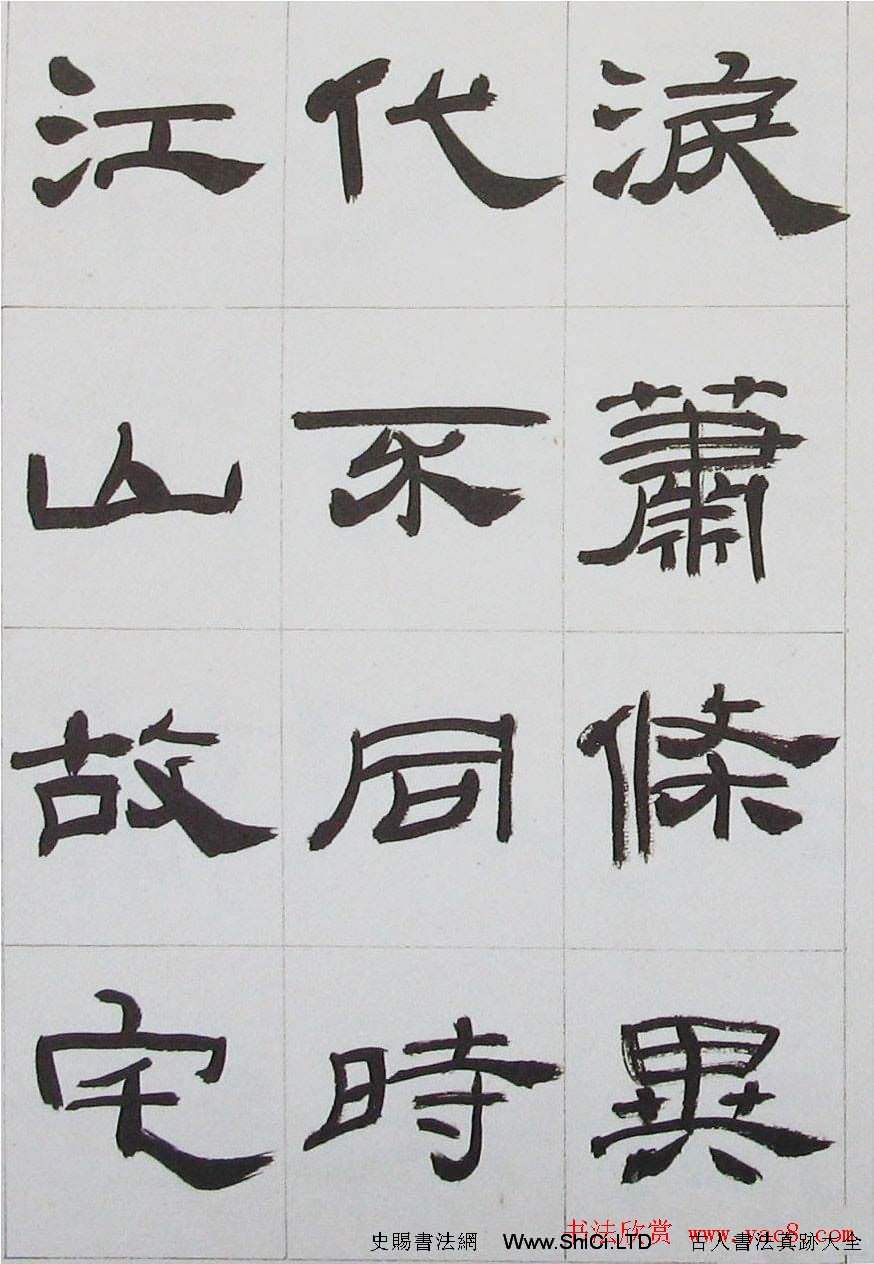 淚蕭條異
代不同時
江山故宅
书法欣赏 www.yac8.com
史賜書法網 Www.ShiCi.LTD 古人書法真跡大全